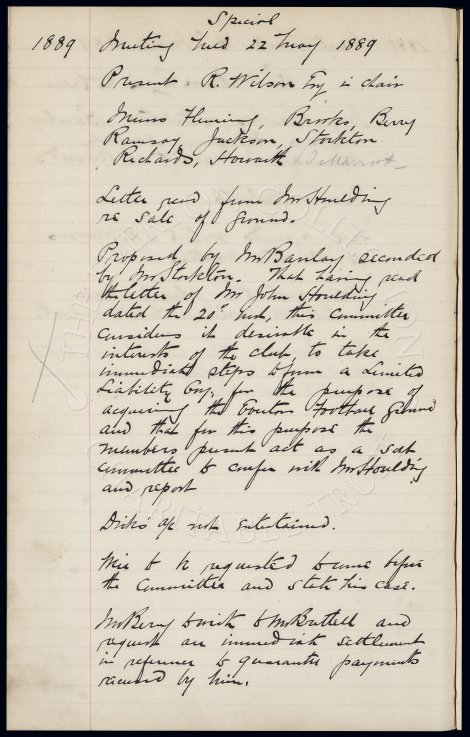 Special
1889 Meeting held 22 May 1889
Present R. Wilson Esq in chair
Messrs Fleming, Brooks, Berry
Ramsay, Jackson, Stockton
Richards, Howarth
Letter read from Mr Houlding
re Sale of Ground.
Proposed by Mr Barclay seconded
by Mr Stockton. That having read
the letter of Mr John Houlding
dated the 20th inst, this committee
considers it desirable in the
interests of the club, to take
immediate steps to form a Limited
Liability Coy, for the purpose of
acquiring the Football Ground
and that for this purpose the
members present act as a sub
committee to confer with Mr Houlding
and report
Dick's a/c not entertained.
to be requested to come before
the Committee and state his case.
Mr Berry to write to Mr and
request an immediate settlement
in reference to guarantee payments
received by him.